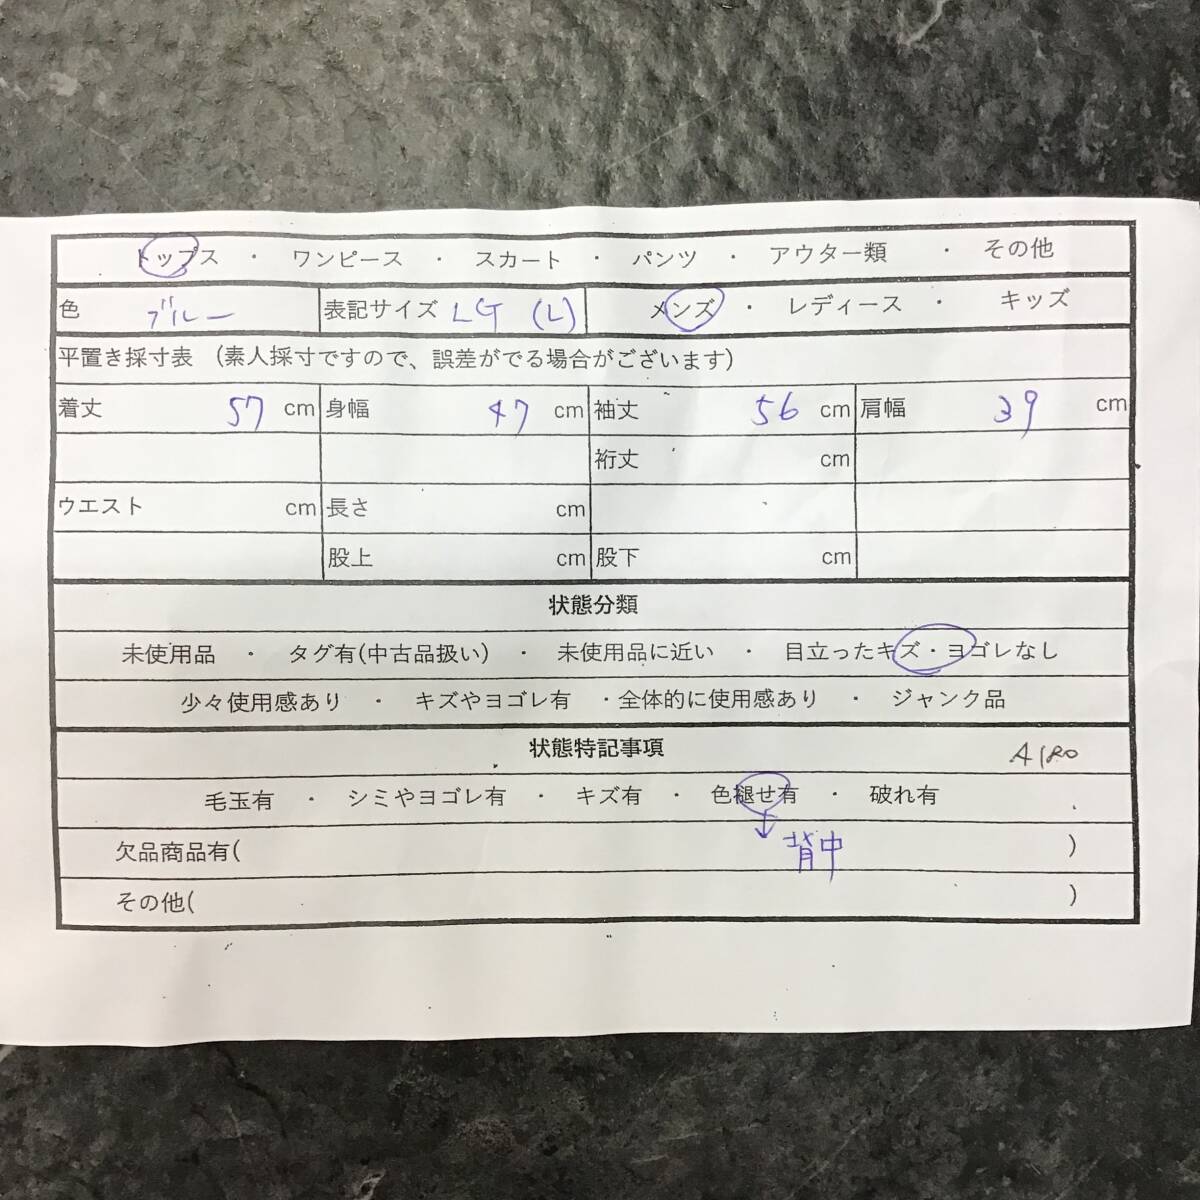 トップス ・ ワンピース ・ スカート ・ パンツ ・ アウター類 ・ その他
色 ブルー 表記サイズ LG (L) メンズ ・ レディース ・ キッズ
平置き採寸表 (素人採寸ですので、誤差がでる場合がございます)
着丈 57 cm 身幅 47 cm 袖丈 56 cm 肩幅 39 cm
裄丈 cm
ウエスト cm 長さ cm
股上 cm 股下 cm
状態分類
未使用品 ・ タグ有(中古品扱い) ・ 未使用品に近い ・ 目立ったキズ・ヨゴレなし
少々使用感あり ・ キズやヨゴレ有 ・全体的に使用感あり ・ ジャンク品
状態特記事項
毛玉有 ・ シミやヨゴレ有 ・ キズ有 ・ 色褪せ有 ・ 破れ有
↓背中
欠品商品有( )
その他( )